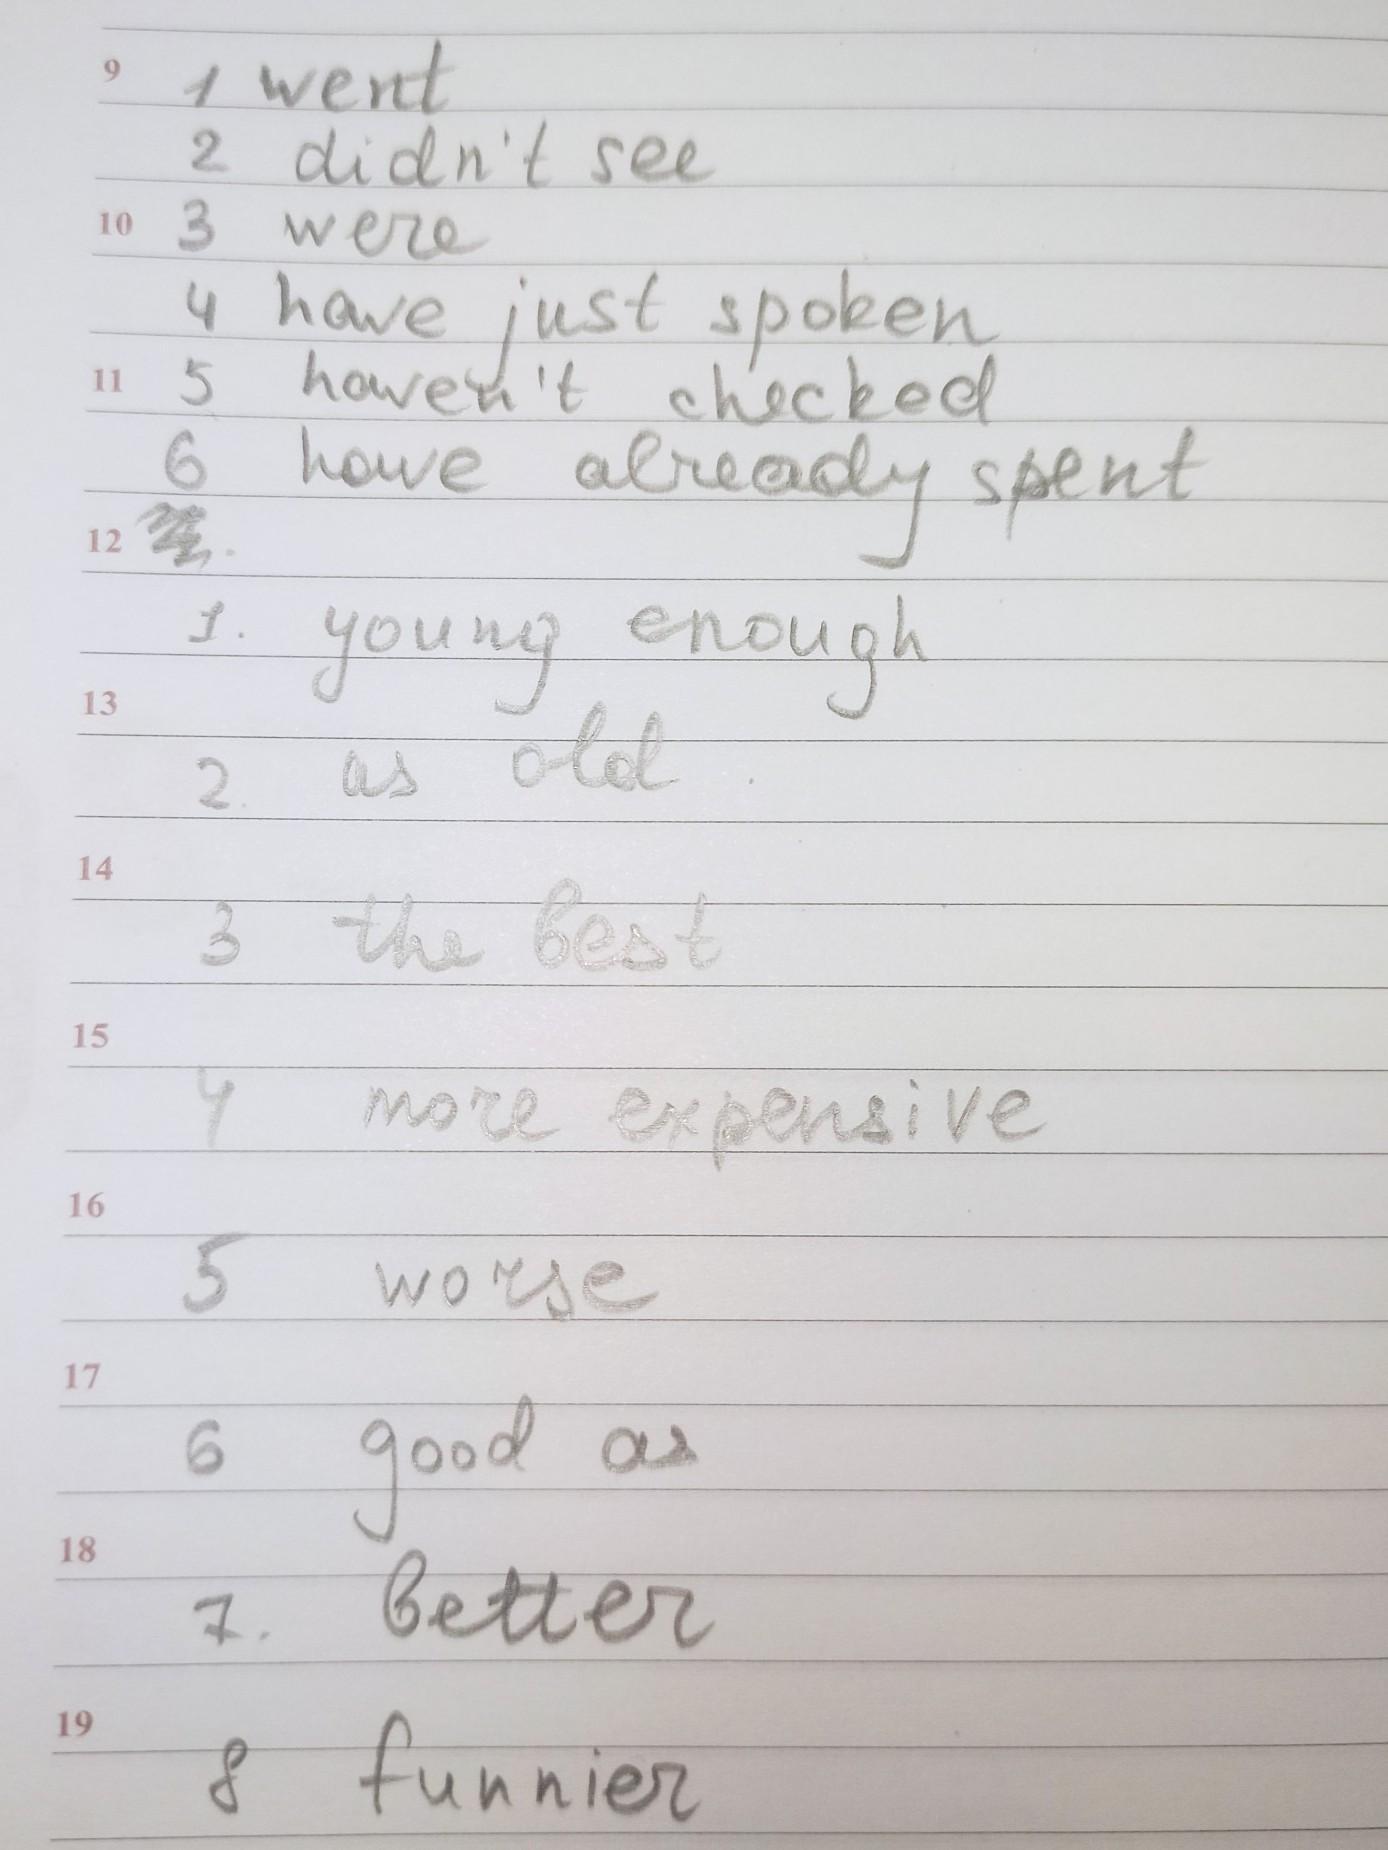 9 1 went
2 didn't see
10 3 were
4 have just spoken
11 5 haven't checked
6 have already spent
12
1. young enough
13
2. as old.
14
3 the best
15
4 more expensive
16
5 worse
17
6 good as
18
7. better
19
8 funnier